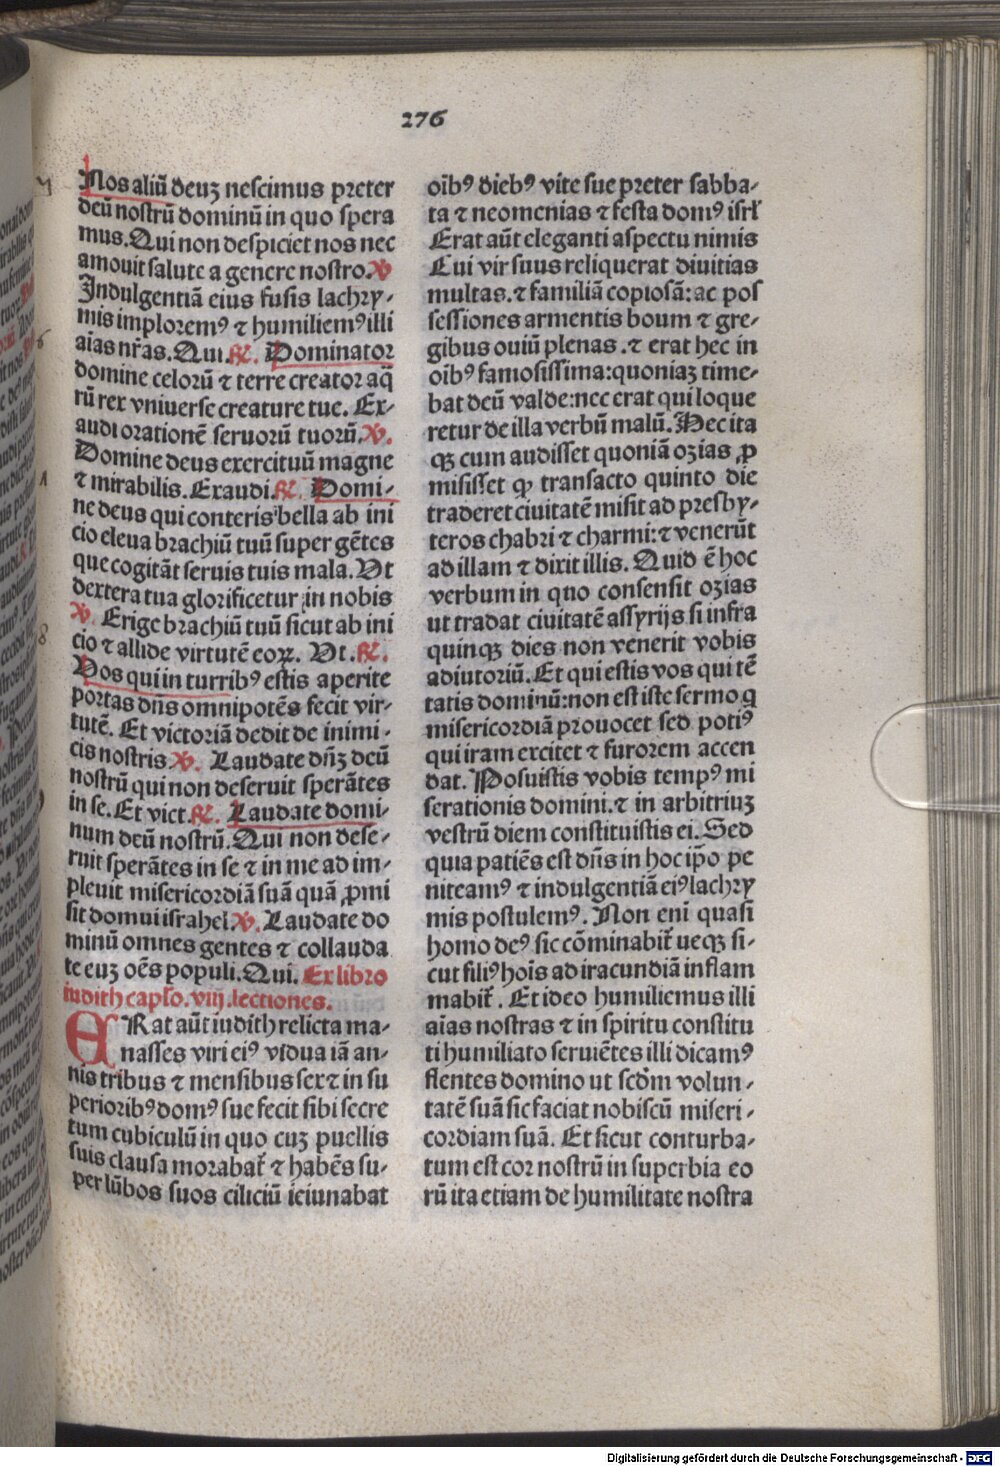 276
Nos aliū deuʒ nescimus preter
deū nostrū dominū in quo spera
mus. Qui non despiciet nos nec
amouit salute a genere nostro. ℣
Indulgentiā eius fusis lachry-
mis implorem⁹ ⁊ humiliem⁹ illi
aīas nr̄as. Qui. ℟. Dominator
domine celorū ⁊ terre creator aq̄
rū rex vniuerse creature tue. Ex-
audi orationē seruorū tuorū. ℣.
Domine deus exercituū magne
⁊ mirabilis. Exaudi. ℟. Domi-
ne deus qui conteris bella ab ini
cio eleua brachiū tuū super gētes
que cogitāt seruis tuis mala. Vt
dextera tua glorificetur in nobis
℣. Erige brachiū tuū sicut ab ini
cio ⁊ allide virtutē eoꝝ. Vt. ℟.
Vos qui in turrib⁹ estis aperite
portas dn̄s omnipotēs fecit vir-
tutē. Et victoriā dedit de inimi-
cis nostris ℣. Laudate dn̄ʒ deū
nostrū qui non deseruit sperātes
in se. Et vict. ℟. Laudate domi-
num deū nostrū. Qui non dese-
ruit sperātes in se ⁊ in me ad im-
pleuit misericordiā suā quā ꝓmi
sit domui israhel ℣. Laudate do
minū omnes gentes ⁊ collauda
te euʒ oēs populi. Qui. Ex libro
iudith capło. viij. lectiones.
ERat aūt iudith relicta ma-
nasses viri ei⁹ vidua iā an-
nis tribus ⁊ mensibus sex ⁊ in su
periorib⁹ dom⁹ sue fecit sibi secre
tum cubiculū in quo cuʒ puellis
suis clausa morabat̄ ⁊ habēs su-
per lūbos suos ciliciū ieiunabat
oīb⁹ dieb⁹ vite sue preter sabba-
ta ⁊ neomenias ⁊ festa dom⁹ isrł
Erat aūt eleganti aspectu nimis
Cui vir suus reliquerat diuitias
multas. ⁊ familiā copiosā: ac pos
sessiones armentis boum ⁊ gre-
gibus ouiū plenas. ⁊ erat hec in
oīb⁹ famosissima: quoniaʒ time-
bat deū valde: nec erat qui loque
retur de illa verbū malū. Hec ita
qꝫ cum audisset quoniā ozias ꝓ
misisset ꝙ transacto quinto die
traderet ciuitatē misit ad presby-
teros chabri ⁊ charmi: ⁊ venerūt
ad illam ⁊ dixit illis. Quid ē hoc
verbum in quo consensit ozias
ut tradat ciuitatē assyrijs si infra
quinqꝫ dies non venerit vobis
adiutoriū. Et qui estis vos qui tē
tatis dominū: non est iste sermo q
misericordiā prouocet sed poti⁹
qui iram excitet ⁊ furorem accen
dat. Posuistis vobis temp⁹ mi
serationis domini. ⁊ in arbitriuʒ
vestrū diem constituistis ei. Sed
quia patiēs est dn̄s in hoc ip̄o pe
niteam⁹ ⁊ indulgentiā ei⁹ lachry
mis postulem⁹. Non eni quasi
homo de⁹ sic cōminabit̄ neqꝫ si-
cut fili⁹ hoīs ad iracundiā inflam
mabit̄. Et ideo humiliemus illi
aīas nostras ⁊ in spiritu constitu
ti humiliato seruiētes illi dicam⁹
flentes domino ut scdm̄ volun-
tatē suā sic faciat nobiscū miseri-
cordiam suā. Et sicut conturba-
tum est cor nostrū in superbia eo
rū ita etiam de humilitate nostra
Digitalisierung gefördert durch die Deutsche Forschungsgemeinschaft - DFG